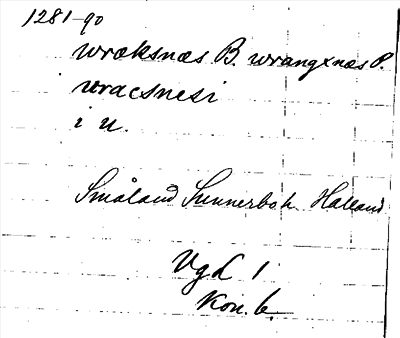 1281-90
wræksnæs B. wrangxnæs P.
uracsnesi
i U.
Småland Sunnerbo h. Halland
VgL 1
Kon. b.